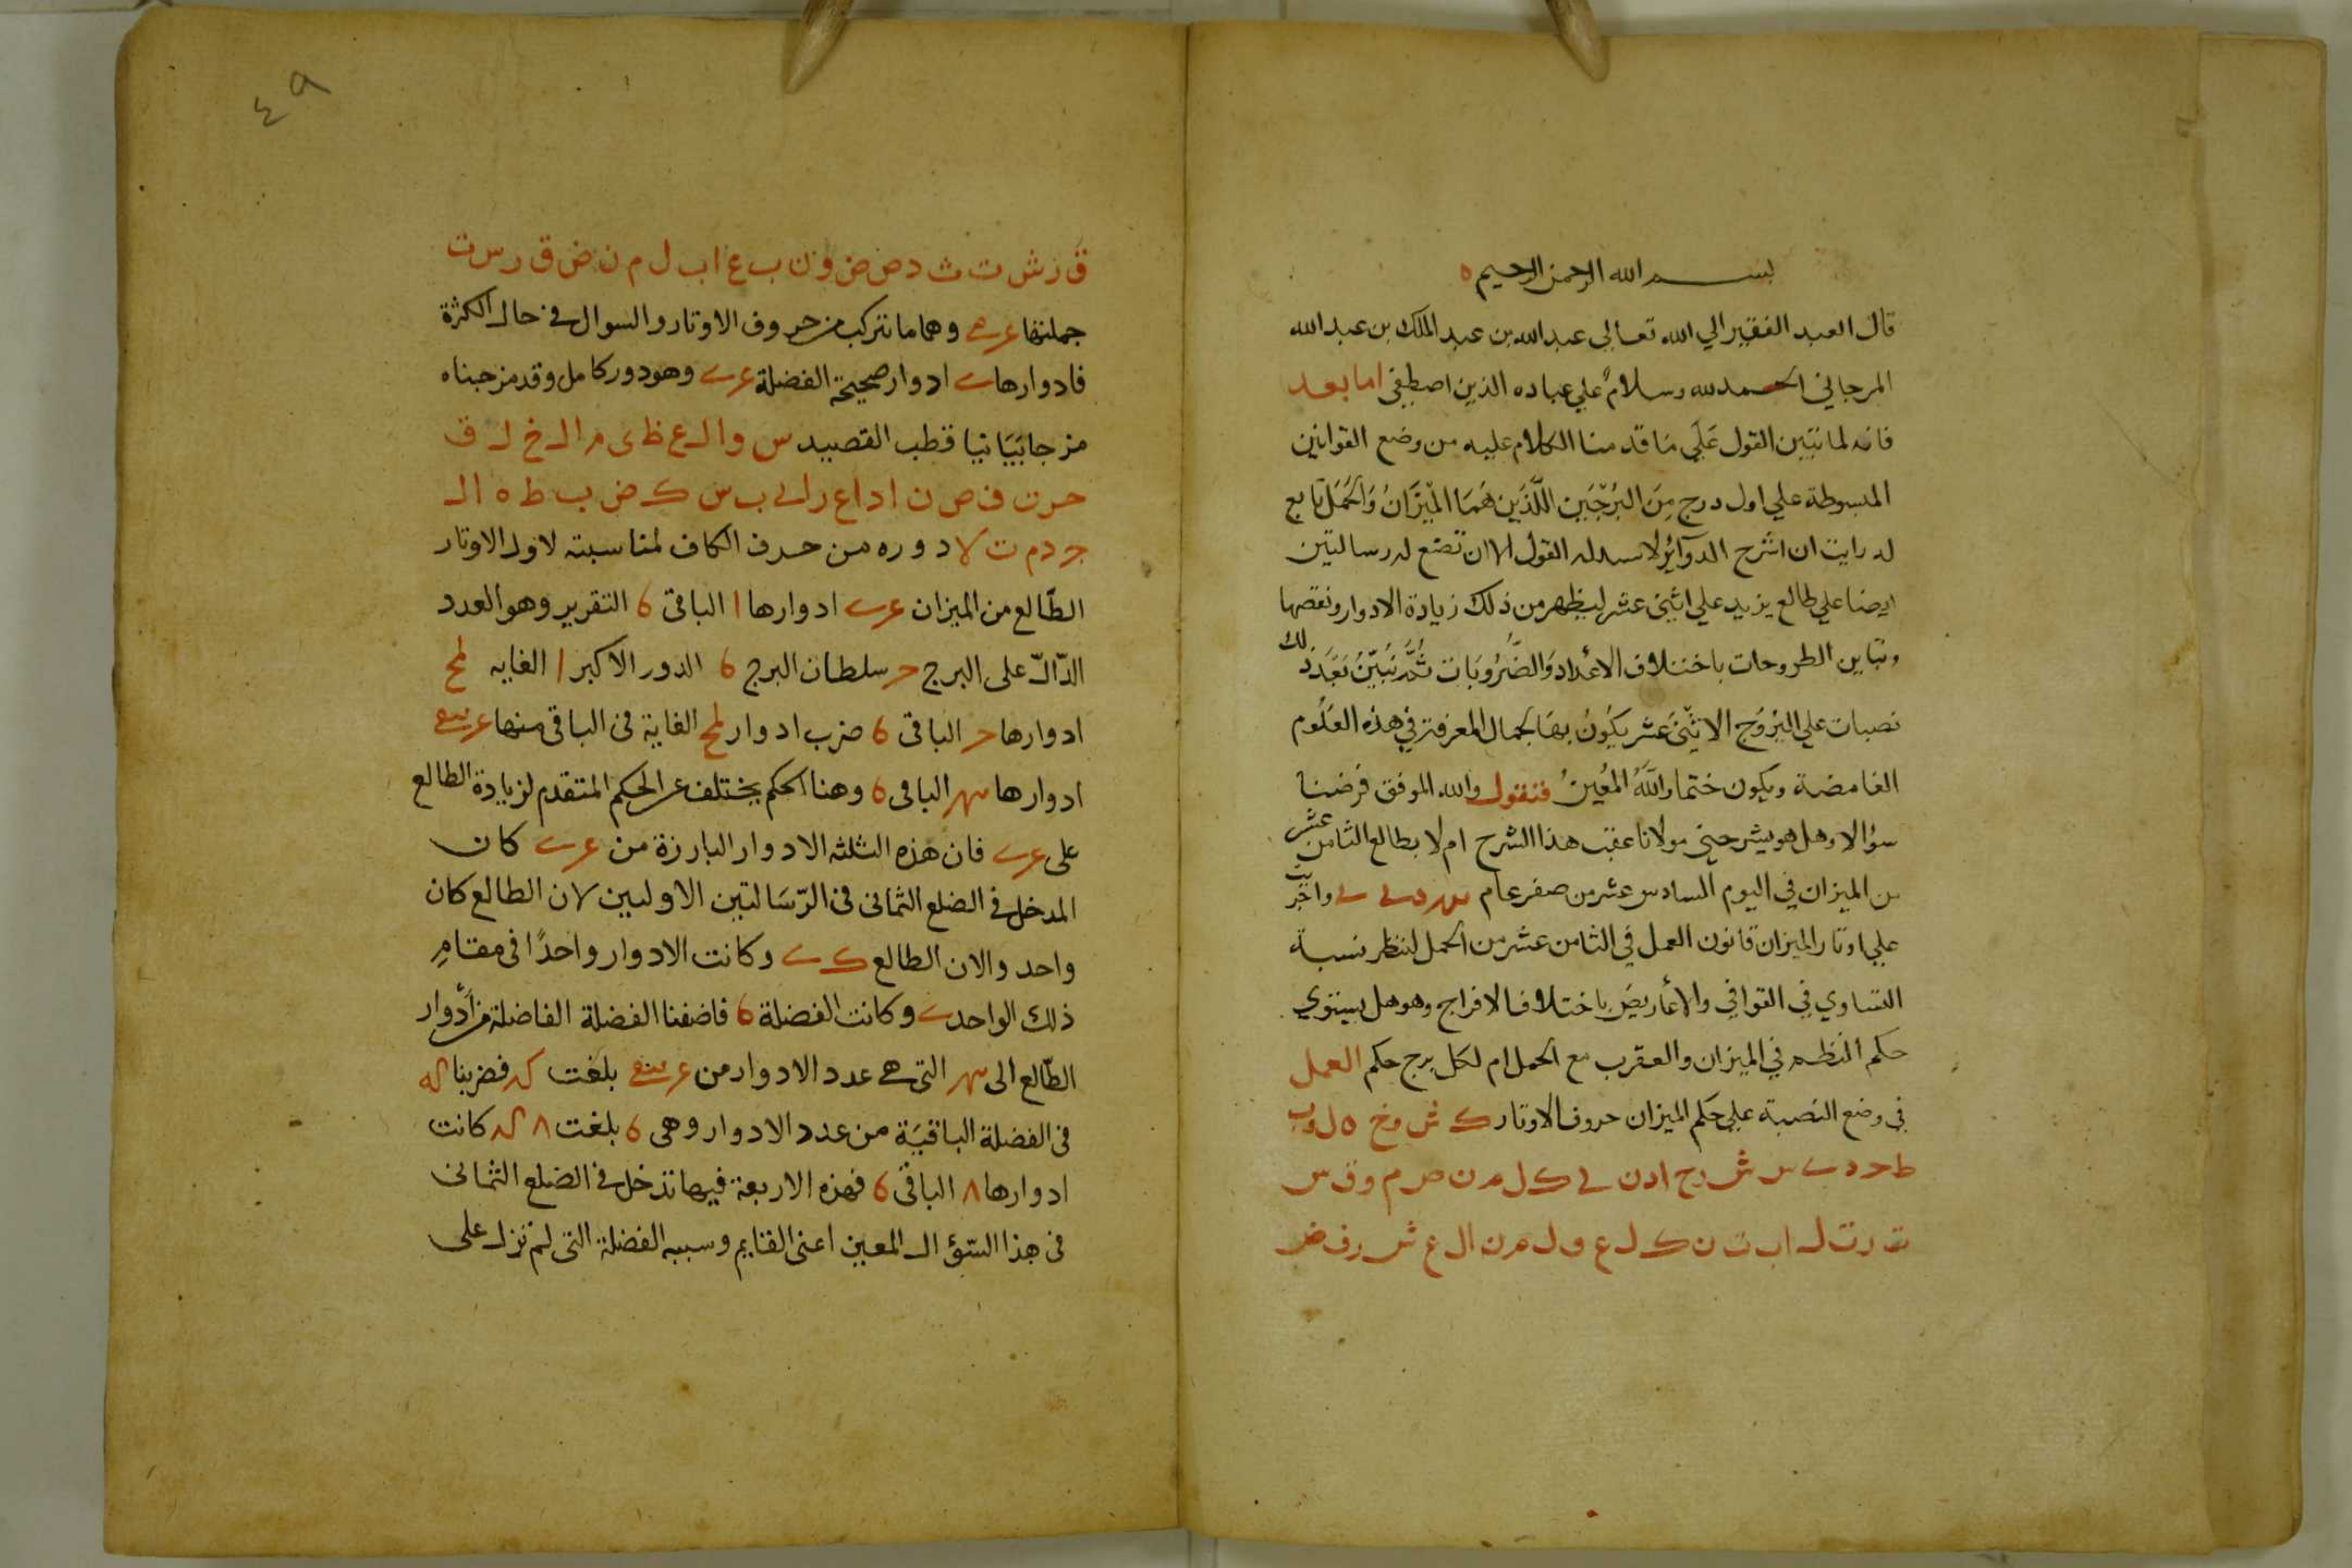 بسم الله الرحمن الرحيم
قال العبد الفقير الي الله تعالي عبد الله بن عبد الملك بن عبد الله
المرجاني الحمد لله وسلام علي عباده الذين اصطفي اما بعد
فانه لما تبين القول علي ما قدمنا الكلام عليه من وضع القوانين
المبسوطة علي اول درج من البرجين اللذين هما الميزان والحمل تابع
له رايت ان اشرح الدوائر ولا القول الا ان تضع له رسالتين
ايضا علي طالع يزيد علي اثني عشر ليظهر من ذلك زيادة الادوار ونقصها
وتباين الطروحات باختلاف الاعداد والضروبات ثم نبين بعد ذلك
نصبات علي البروج الاثني عشر يكون بها كمال المعرفة في هذه العلوم
الغامضة ويكون ختما والله المعين فنقول والله الموفق فرضنا
سؤالا وهل هو يشرحني مولانا عقب هذا الشرح ام لا بطالع الثامن عشر
من الميزان في اليوم السادس عشر من صفر عام
علي اوتار الميزان قانون العمل في الثامن عشر من الحمل لننظر نسبة
التساوي في القوافي والاعاريض باختلاف الافراج وهو هل يستوي
حكم النظم في الميزان والعقرب مع الحمل ام لكل برج حكم العمل
في وضع النصبة علي حكم الميزان حروف الاوتار ك ش و خ ه ل و ب
ط ح د س ش ر ح ا د ن ك ل م ن ص م و ق س
ت ر ت ل ا ب ت ن ك ل ع و ل م ن ا ل ع ش ر ف ض
٤٩
ق ر ش ت ث د ص ض و ن ب ع ا ب ل م ن ض ق ر س ت
جملتها وهما ما تركب من حروف الاوتار والسوال في حال الكثرة
فادوارها ادوار صحيحة الفضلة وهو دور كامل وقد مزجناه
مزجا بيانيا قطب القصيد س و ا ل ع ظ ى م ا ل خ ل ق
ح ر ت ف ص ن ا د ا ع ر ا ب س ك ض ب ط ه ا ل
ج د م ت لا دوره من حرف الكاف لمناسبته لاول الاوتار
الطالع من الميزان ادوارها ا الباقى 6 التقرير وهو العدد
الدال على البرج ح سلطان البرج 6 الدور الاكبر ا الغايه لمح
ادوارها ح الباقى 6 ضرب ادوار لمح الغاية فى الباقى منها
ادوارها الباقى 6 وهنا الحكم يختلف عن الحكم المتقدم لزيادة الطالع
على فان هذه الثلثه الادوار البارزة من كان
المدخل فى الضلع الثمانى فى الرسالتين الاوليين لان الطالع كان
واحد والان الطالع وكانت الادوار واحدا فى مقام
ذلك الواحد وكانت الفضلة 6 فاضفنا الفضلة الفاضلة من ادوار
الطالع الى التى هى عدد الادوار من بلغت فضربنا
فى الفضلة الباقية من عدد الادوار وهى 6 بلغت كانت
ادوارها ٨ الباقى 6 فهذه الاربعة فيها تدخل فى الضلع الثمانى
فى هذا السؤال المعين اعنى القايم وسببه الفضلة التى لم تزل على